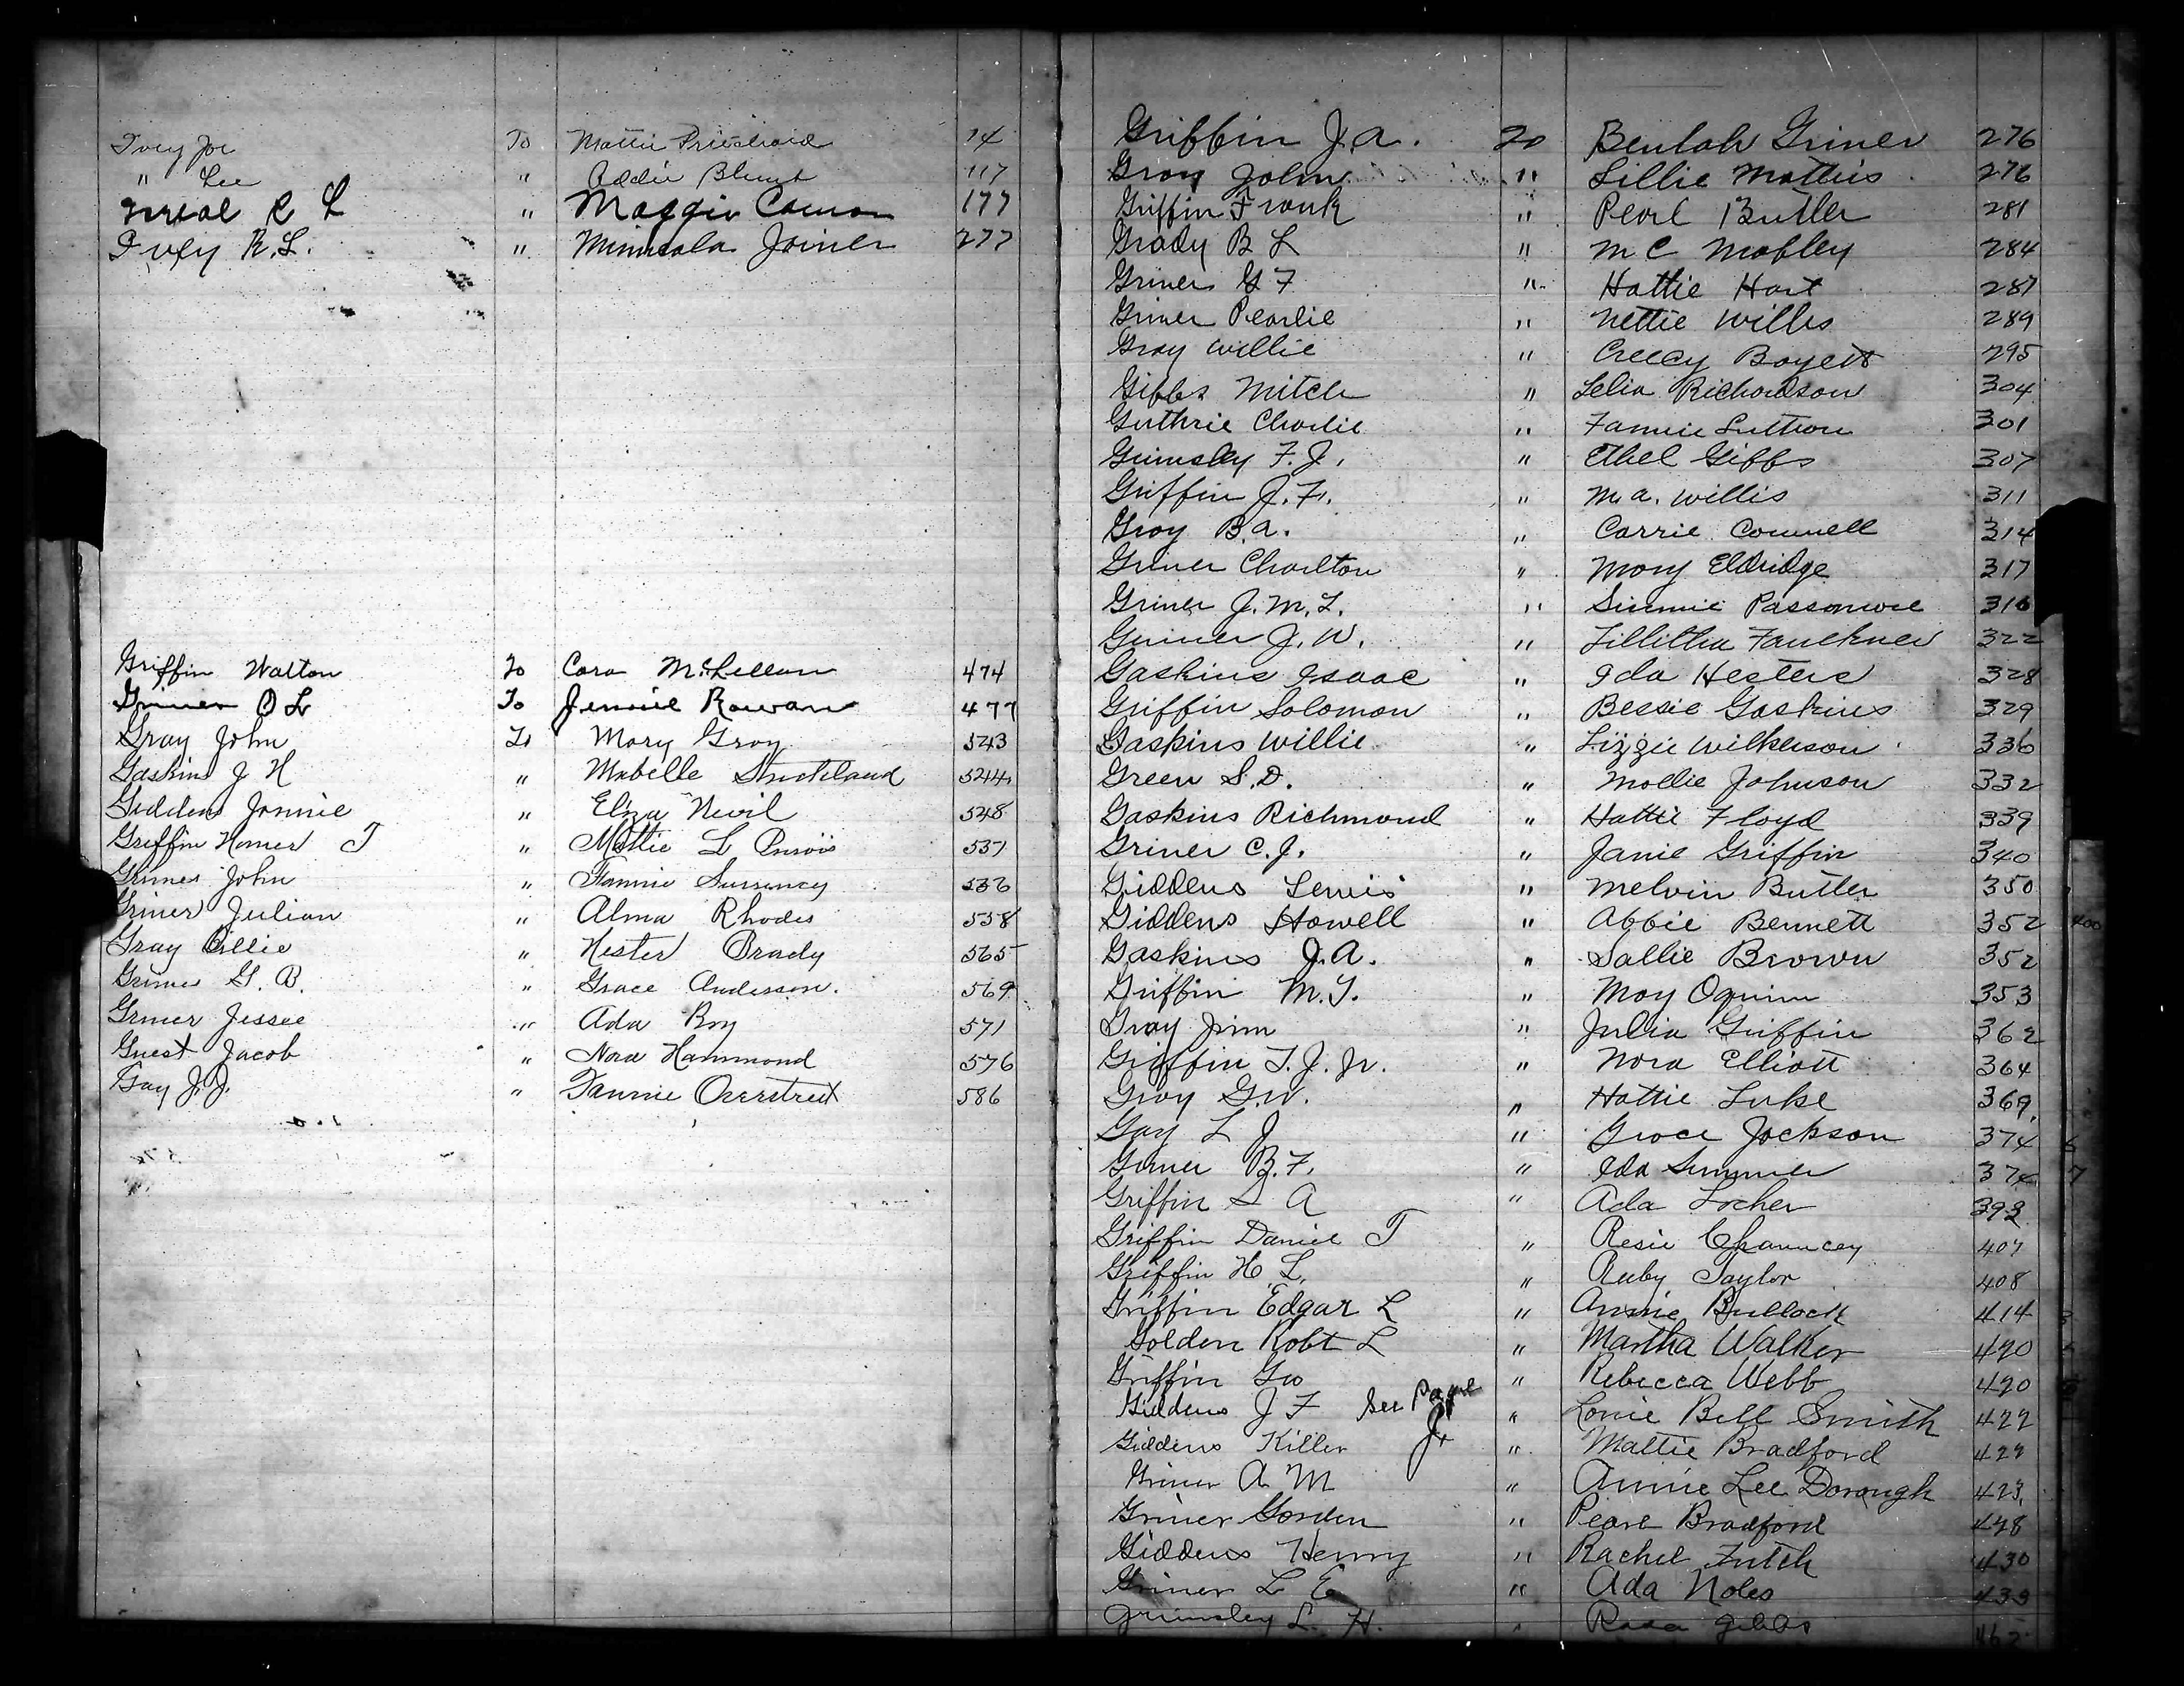 Ivey Joe To Mattie 14
" Lee " Addie Blount 117
R L " Maggie 177
Ivey R.L. " Joiner 277
Griffin Walton To Cora McLellan 474
Griner O L To Jennie Rowan 477
Gray John To Mary Gray 543
Gaskins J H " Mabelle Strickland 544
Giddens Jonnie " Eliza Nevil 548
Griffin Homer T " Mattie L 537
Griner John " Fannie Surrency 536
Griner Julian " Alma Rhodes 558
Gray Ollie " Hester Brady 565
Griner G. B. " Grace Anderson. 569
Griner Jessee " Ada 571
Guest Jacob " Nora Hammond 576
Gay J.J. " Fannie Overstreet 586
Griffin J.A. To Beulah Griner 276
Gray John " Lillie Mathis 276
Griffin Frank " Pearl Butler 281
Grady B L " M C Mobley 284
Griner G F " Hattie Hart 287
Griner Pearlie " Nettie Willis 289
Gray Willie " Creecy Boyett 295
Gibbs Mitch " Lelia Richardson 304
Guthrie Charlie " Fannie Sutton 301
Grimsley F.J. " Ethel Gibbs 307
Griffin J.F. " M.A. Willis 311
Gray B.A. " Carrie Connell 314
Griner Charlton " Mary Eldridge 317
Griner J.M.L. " 316
Griner J.W. " Tillitha Faulkner 322
Gaskins Isaac " Ida Hesters 328
Griffin Solomon " Bessie Gaskins 329
Gaskins Willie " Lizzie Wilkerson 336
Green S.D. " Mollie Johnson 332
Gaskins Richmond " Hattie Floyd 339
Griner C.J. " Janie Griffin 340
Giddens Lewis " Melvin Butler 350
Giddens Howell " Abbie Bennett 352
Gaskins J.A. " Sallie Brown 352
Griffin M.T. " May Oquinn 353
Gray Jim " Julia Griffin 362
Griffin T.J. Jr. " Nora Elliott 364
Gray G.W. " Hattie Luke 369
Gay L J " Grace Jackson 374
Griner B.F. " Ida Summer 374
Griffin S A " Ada Locher 393
Griffin Daniel T " Rosie Chauncey 407
Griffin H L. " Ruby Taylor 408
Griffin Edgar L " Annie Bullock 414
Golden Robt L " Martha Walker 420
Griffin Geo " Rebecca Webb 420
Giddens J F See Page J " Lonie Bell Smith 422
Giddens Killer " Mattie Bradford 422
Griner A M " Annie Lee Dorough 423
Griner Gorden " Pearl Bradford 428
Giddens Henry " Rachel Futch 430
Griner L E " Ada Noles 433
Grimsley L. H. " Rada Gibbs 462